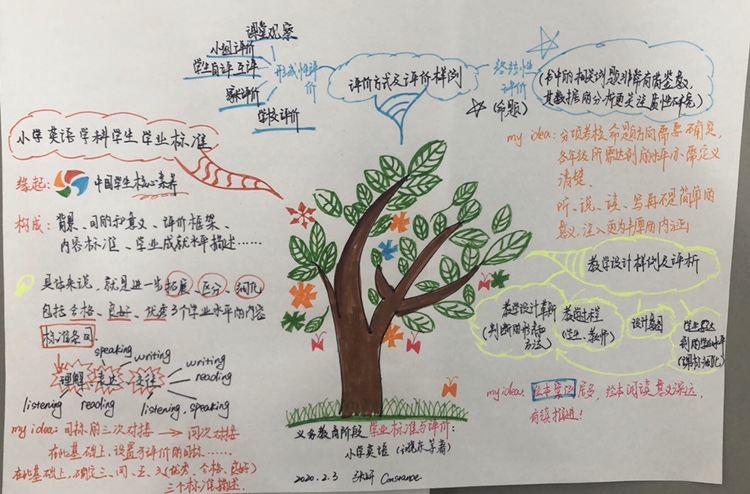 课堂观察
小组评价
学生自评、互评
家长评价
学校评价
形成性评价
评价方式及评价样例
终结性
评价
(命题)
(书中的相关例题非常有借鉴意义,
其数据的分析更关注属性不足)
my idea: 分项考核命题方向需要确定,
各年级所需达到的水平亦需定义
清楚.
听、说、读、写再不是简单的
意义,注入更为丰厚的内涵
小学英语学科学生学业标准
缘起:
中国学生核心素养
构成: 背景、目的和意义、评价框架、
内容标准、学业成就水平描述……
具体来说, 就是进一步拓展、区分、细化
包括合格、良好、优秀3个学业水平的内容
标准条目
speaking
writing
理解
表达
交流
writing
reading
listening
reading
listening, speaking
my idea: 目标的三次对接 → 同次对接
在此基础上, 设置了评价的目标……
在此基础上,确定三、四、五、六(优秀、合格、良好)
三个标准描述.
教学设计样例及评析
教学设计革新
(判断的形态和
方法)
教学过程
(学生、教师)
设计意图
学生达
到的学业水平
my idea: 绘本案例居多, 绘本阅读意义深远,
有待推进!
义务教育阶段 学业标准与评价:
小学英语 (沙晓东等著)
2020.2.3
Constance